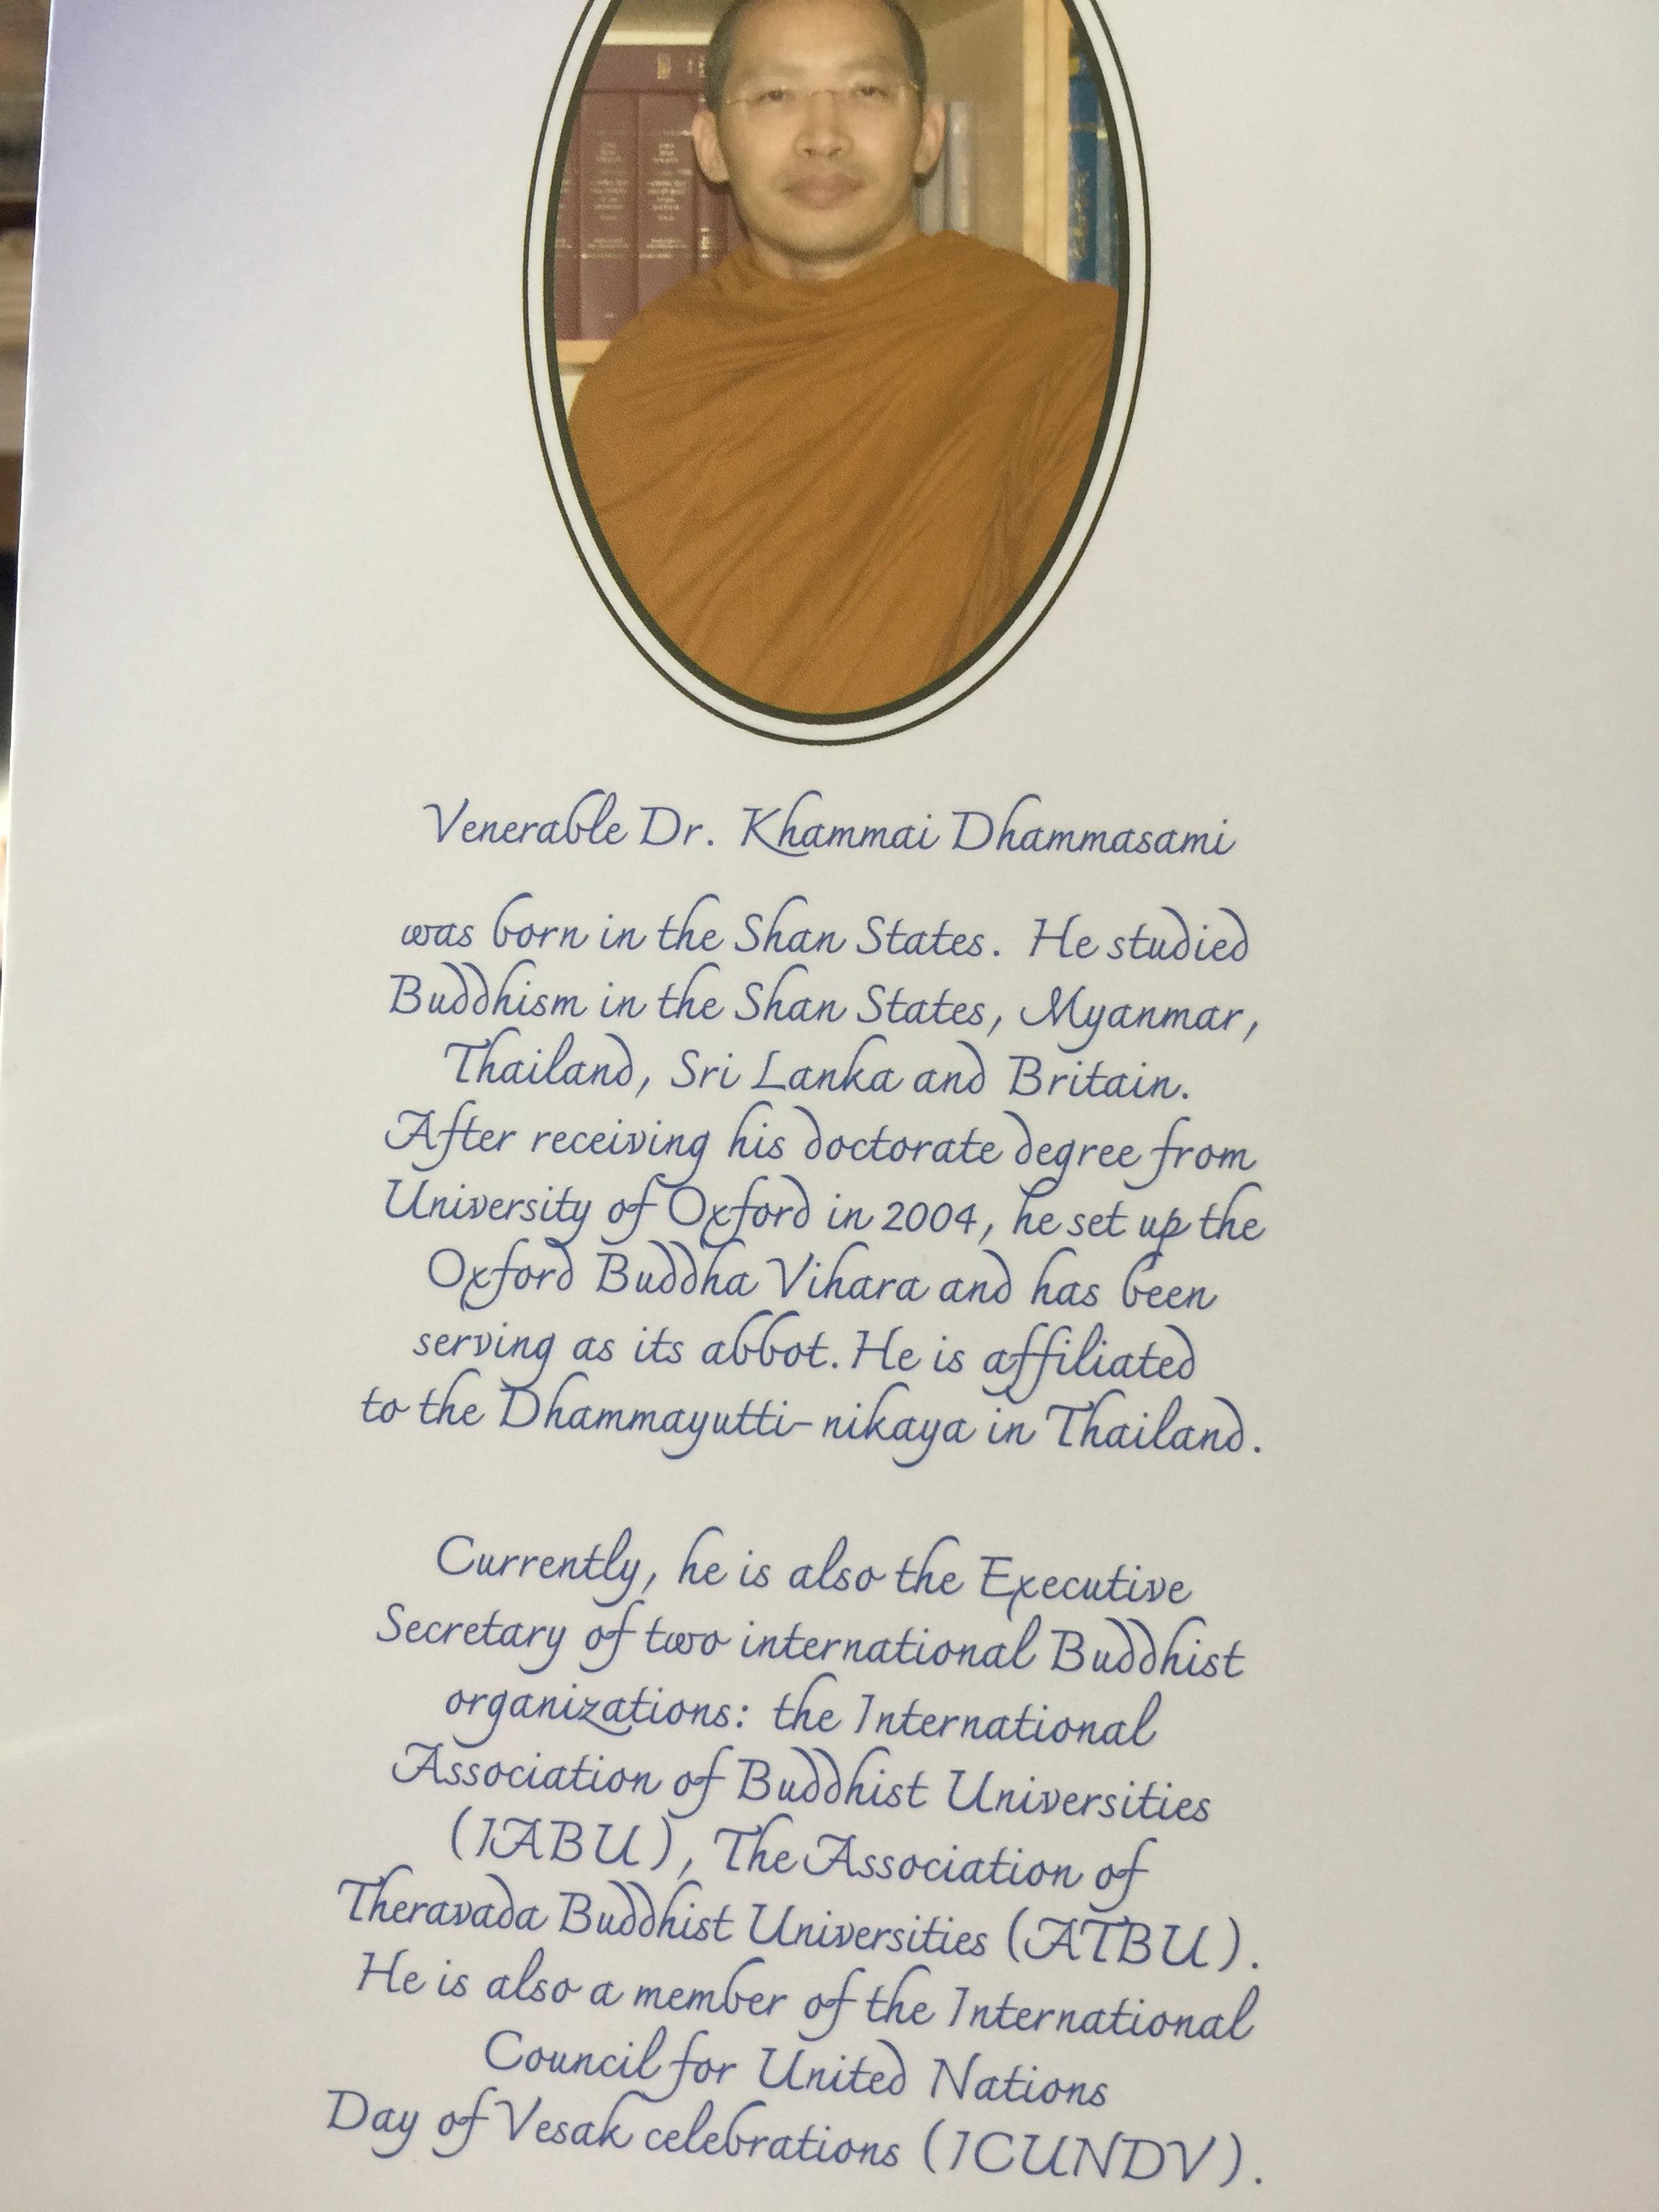 Venerable Dr. Khammai Dhammasami
was born in the Shan States. He studied
Buddhism in the Shan States, Myanmar,
Thailand, Sri Lanka and Britain.
After receiving his doctorate degree from
University of Oxford in 2004, he set up the
Oxford Buddha Vihara and has been
serving as its abbot. He is affiliated
to the Dhammayutti-nikaya in Thailand.
Currently, he is also the Executive
Secretary of two international Buddhist
organizations: the International
Association of Buddhist Universities
(IABU), The Association of
Theravada Buddhist Universities (ATBU).
He is also a member of the International
Council for United Nations
Day of Vesak celebrations (ICUNDV).